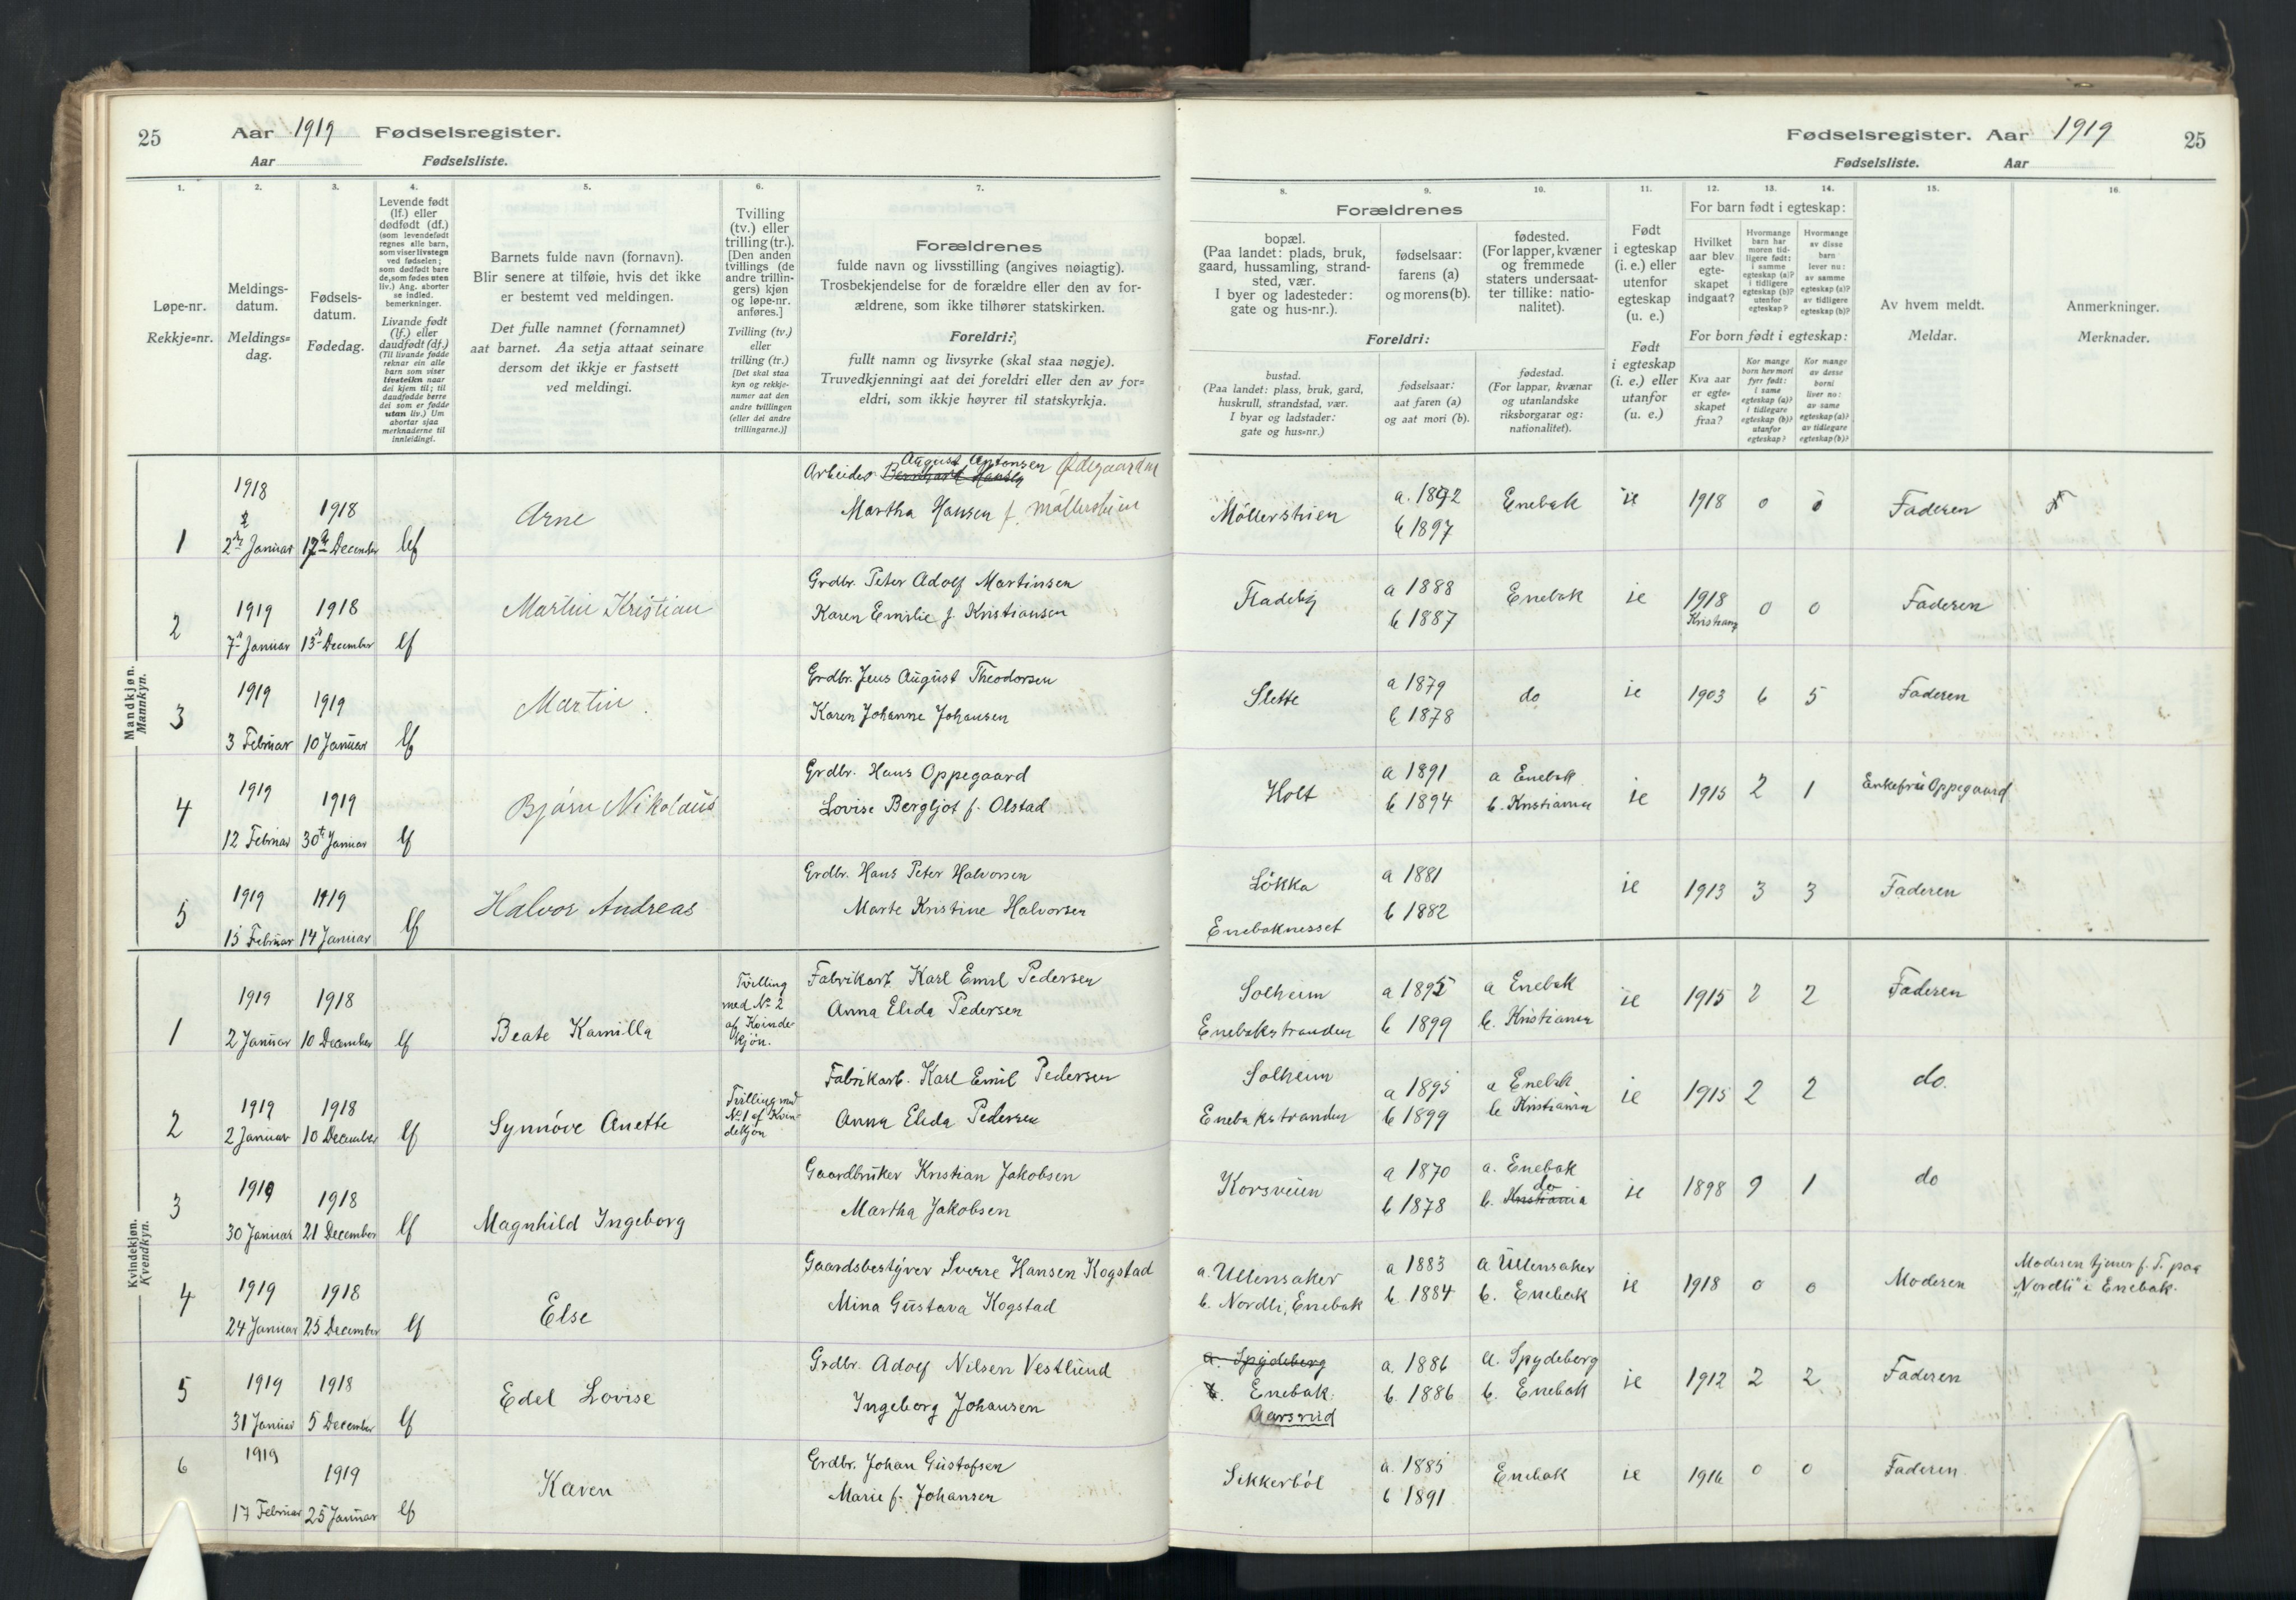 25
Aar 1919 Fødselsregister.
Aar Fødselsliste.
1.
2.
3.
4.
5.
6.
7.
Løpe-nr.
Rekkje=nr.
Meldings-
datum.
Meldings=
dag.
Fødsels-
datum.
Fødedag.
Levende født
(lf.) eller
dødfødt (df.)
(som levendefødt
regnes alle barn,
som viser livstegn
ved fødselen;
som dødfødt bare
de, som fødes uten
liv.) Ang. aborter
se indled.
bemerkninger.
Livande født
(lf.) eller
daudfødt (df.)
(Til livande fødde
reknar ein alle
barn som viser
livsteikn naar
dei kjem til; til
daudfødde berre
dei som er fødde
utan liv.) Um
abortar sjaa
merknaderne til
innleidingi.
Barnets fulde navn (fornavn).
Blir senere at tilføie, hvis det ikke
er bestemt ved meldingen.
Det fulle namnet (fornamnet)
aat barnet. Aa setja attaat seinare
dersom det ikkje er fastsett
ved meldingi.
Tvilling
(tv.) eller
trilling (tr.).
[Den anden
tvillings (de
andre trillin-
gers) kjøn
og løpe-nr.
anføres.]
Tvilling (tv.)
eller
trilling (tr.)
[Det skal staa
kyn og rekkje-
numer aat den
andre tvillingen
(eller dei andre
trillingarne.)]
Forældrenes
fulde navn og livsstilling (angives nøiagtig).
Trosbekjendelse for de forældre eller den av for-
ældrene, som ikke tilhører statskirken.
Foreldri:
fullt namn og livsyrke (skal staa nøgje).
Truvedkjenningi aat dei foreldri eller den av for=
eldri, som ikkje høyrer til statskyrkja.
Mandkjøn.
Mannkyn.
1
1918
2 Januar
1918
17de December
lf
Arne
Arbeider Bernhard Hansen August Antonsen Ødegaarden
Martha Hansen f. Møllerstuen
2
1919
7 Januar
1918
13 December
lf
Martin Kristian
Grdbr. Peter Adolf Martinsen
Karen Emilie f. Kristiansen
3
1919
3 Februar
1919
10 Januar
lf
Martin.
Grdbr. Jens August Theodorsen
Karen Johanne Johansen
4
1919
12 Februar
1919
30te Januar
lf
Bjørn Nikolaus
Grdbr. Hans Oppegaard
Lovise Bergljot f. Olstad
5
1919
15 Februar
1919
14 Januar
lf
Halvor Andreas
Grdbr. Hans Peter Halvorsen
Marte Kristine Halvorsen
Kvindekjøn.
Kvendkyn.
1
1919
2 Januar
1918
10 December
lf
Beate Kamilla
Tvilling
med No 2
af Kvinde-
kjøn.
Fabrikarb. Karl Emil Pedersen
Anna Elida Pedersen
2
1919
2 Januar
1918
10 December
lf
Synnøve Anette
Tvilling med
No 1 af Kvin-
dekjøn
Fabrikarb. Karl Emil Pedersen
Anna Elida Pedersen
3
1919
30 Januar
1918
21 December
lf
Magnhild Ingeborg
Gaardbruker Kristian Jakobsen
Martha Jakobsen
4
1919
24 Januar
1918
25 December
lf
Else
Gaardsbestyrer Sverre Hansen Kogstad
Mina Gustava Kogstad
5
1919
31 Januar
1918
5 December
lf
Edel Lovise
Grdbr. Adolf Nilsen Vestlund
Ingeborg Johansen
6
1919
17 Februar
1919
25 Januar
lf
Karen
Grdbr. Johan Gustafsen
Marie f. Johansen
Fødselsregister. Aar 1919
25
Fødselsliste. Aar
8.
9.
10.
11.
12.
13.
14.
15.
16.
Forældrenes
bopæl.
(Paa landet: plads, bruk,
gaard, hussamling, strand-
sted, vær.
I byer og ladesteder:
gate og hus-nr.).
fødselsaar:
farens (a)
og morens (b).
fødested.
(For lapper, kvæner
og fremmede
staters undersaat-
ter tillike: natio-
nalitet).
Foreldri:
bustad.
(Paa landet: plass, bruk, gard,
huskrull, strandstad, vær.
I byar og ladstader:
gate og hus=nr.)
fødselsaar:
aat faren (a)
og aat mori (b).
fødestad.
(For lappar, kvænar
og utanlandske
riksborgarar og:
nationalitet).
Født
i egteskap
(i. e.) eller
utenfor
egteskap
(u. e.)
Født
i egteskap
(i. e.) eller
utanfor
(u. e.)
For barn født i egteskap:
Hvilket
aar blev
egte-
skapet
indgaat?
Hvormange
barn har
moren tid-
ligere født:
i samme
egteskap (a)?
i tidligere
egteskap (b)?
utenfor
egteskap?
Hvormange
av disse
barn
lever nu:
av samme
egteskap (a)?
av tidligere
egteskap (b)?
For born født i egteskap:
Kva aar
er egte-
skapet
fraa?
Kor mange
born hev mori
fyrr født:
i same
egteskap (a)?
i tidlegare
egteskap (b)?
utanfor
egteskap?
Kor mange
av desse
borni
liver no:
av same
egteskap (a)?
av tidlegare
egteskap (b)?
Av hvem meldt.
Meldar.
Anmerkninger.
Merknader.
Møllerstuen
a. 1892
b 1897
Enebak
ie
1918
0
0
Faderen
Fladeby
a 1888
b 1887
Enebak
ie
1918
0
0
Faderen
Slette
a 1879
b 1878
do
ie
1903
6
5
Faderen
Holt
a 1891
b 1894
a Enebak
b. Kristiania
ie
1915
2
1
Enkefru Oppegaard
Løkka
Enebaknesset
a 1881
b 1882
ie
1913
3
3
Faderen
Solheim
Enebakstranden
a 1895
b 1899
a Enebak
b. Kristiania
ie
1915
2
2
Faderen
Solheim
Enebakstranden
a 1895
b 1899
a Enebak
b Kristiania
ie
1915
2
2
do.
Korsveien
a 1870
b 1878
a. Enebak
b. Kristiania do
ie
1898
9
1
do
a. Ullensaker
b. Nordli, Enebak
a 1883
b. 1884
a Ullensaker
b. Enebak
ie
1918
0
0
Moderen
Moderen tjener f. T. paa
"Nordli" i Enebak.
a. Spydeberg
b. Enebak.
Aarsrud
a. 1886
b. 1886
a. Spydeberg
b. Enebak
ie
1912
2
2
Faderen
Sikkerbøl
a. 1885
b 1891
Enebak
ie
1916
0
0
Faderen